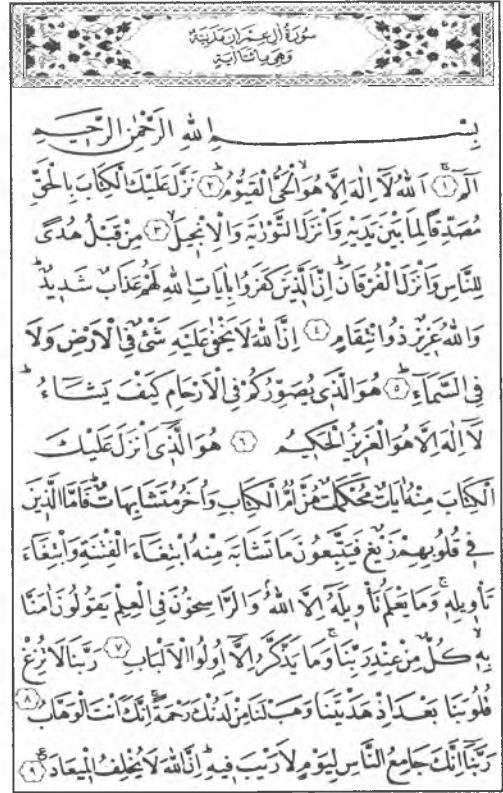 سُورَةُ اٰلِ عِمْرَانَ مَدَنِيَّةٌ
وَهِيَ مِائَتَا اٰيَةٍ
بِسْمِ اللهِ الرَّحْمٰنِ الرَّحِيمِ
الٓمٓ ﴿١﴾ اَللهُ لَآ اِلٰهَ اِلَّا هُوَ الْحَيُّ الْقَيُّومُ ﴿٢﴾ نَزَّلَ عَلَيْكَ الْكِتَابَ بِالْحَقِّ
مُصَدِّقًا لِمَا بَيْنَ يَدَيْهِ وَاَنْزَلَ التَّوْرٰيةَ وَالْاِنْجِيلَ ﴿٣﴾ مِنْ قَبْلُ هُدًى
لِلنَّاسِ وَاَنْزَلَ الْفُرْقَانَ اِنَّ الَّذِينَ كَفَرُوا بِاٰيَاتِ اللهِ لَهُمْ عَذَابٌ شَدِيدٌ
وَاللهُ عَزِيزٌ ذُو انْتِقَامٍ ﴿٤﴾ اِنَّ اللهَ لَا يَخْفٰى عَلَيْهِ شَيْءٌ فِي الْاَرْضِ وَلَا
فِي السَّمَآءِ ﴿٥﴾ هُوَ الَّذِي يُصَوِّرُكُمْ فِي الْاَرْحَامِ كَيْفَ يَشَآءُ
لَآ اِلٰهَ اِلَّا هُوَ الْعَزِيزُ الْحَكِيمُ ﴿٦﴾ هُوَ الَّذِٓي اَنْزَلَ عَلَيْكَ
الْكِتَابَ مِنْهُ اٰيَاتٌ مُحْكَمَاتٌ هُنَّ اُمُّ الْكِتَابِ وَاُخَرُ مُتَشَابِهَاتٌ فَاَمَّا الَّذِينَ
فِي قُلُوبِهِمْ زَيْغٌ فَيَتَّبِعُونَ مَا تَشَابَهَ مِنْهُ ابْتِغَآءَ الْفِتْنَةِ وَابْتِغَآءَ
تَأْوِيلِهِ وَمَا يَعْلَمُ تَأْوِيلَهُٓ اِلَّا اللهُ وَالرَّاسِخُونَ فِي الْعِلْمِ يَقُولُونَ اٰمَنَّا
بِهِ كُلٌّ مِنْ عِنْدِ رَبِّنَا وَمَا يَذَّكَّرُ اِلَّٓا اُولُوا الْاَلْبَابِ ﴿٧﴾ رَبَّنَا لَا تُزِغْ
قُلُوبَنَا بَعْدَ اِذْ هَدَيْتَنَا وَهَبْ لَنَا مِنْ لَدُنْكَ رَحْمَةً اِنَّكَ اَنْتَ الْوَهَّابُ ﴿٨﴾
رَبَّنَٓا اِنَّكَ جَامِعُ النَّاسِ لِيَوْمٍ لَا رَيْبَ فِيهِ اِنَّ اللهَ لَا يُخْلِفُ الْمِيعَادَ ﴿٩﴾